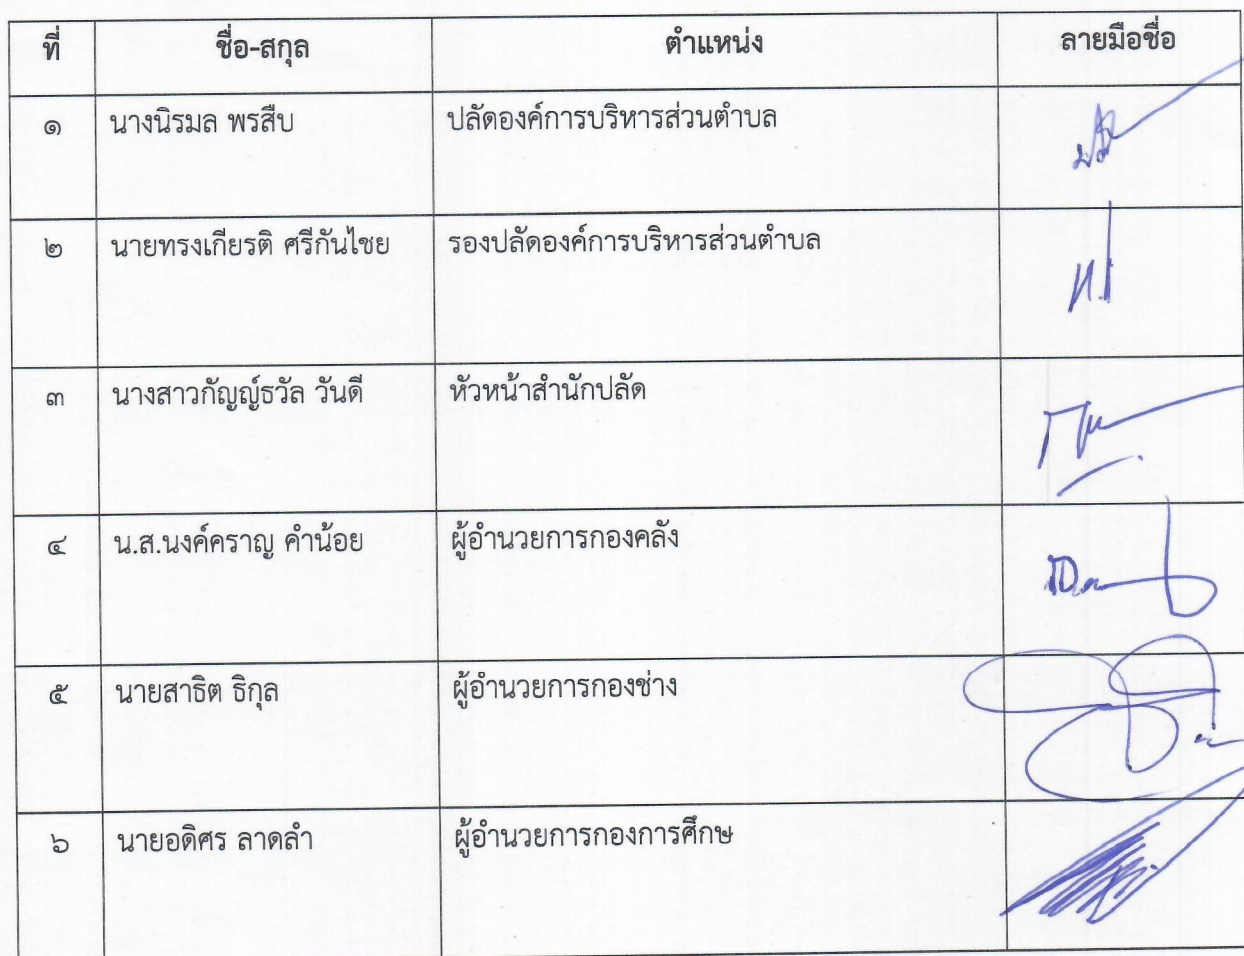 ที่ ชื่อ-สกุล ตำแหน่ง ลายมือชื่อ
๑ นางนิรมล พรสืบ ปลัดองค์การบริหารส่วนตำบล
๒ นายทรงเกียรติ ศรีกันไชย รองปลัดองค์การบริหารส่วนตำบล
๓ นางสาวกัญญ์ธวัล วันดี หัวหน้าสำนักปลัด
๔ น.ส.นงค์คราญ คำน้อย ผู้อำนวยการกองคลัง
๕ นายสาธิต ธิกุล ผู้อำนวยการกองช่าง
๖ นายอดิศร ลาดลำ ผู้อำนวยการกองการศึกษ